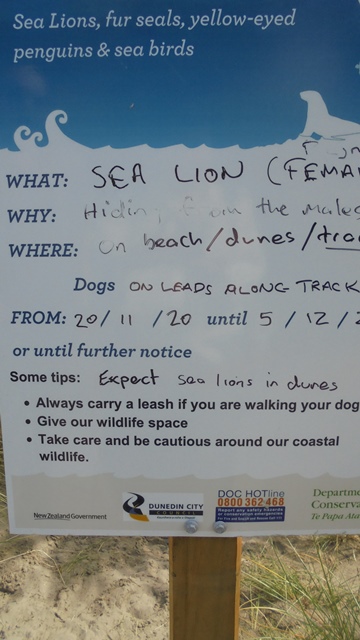 Sea Lions, fur seals, yellow-eyed
penguins & sea birds
WHAT: SEA LION (FEMA
WHY: Hiding from the males
WHERE: on beach/dunes/trac
Dogs ON LEADS ALONG TRACK
FROM: 20/11/20 until 5/12/2
or until further notice
Some tips: Expect sea lions in dunes
• Always carry a leash if you are walking your dog
• Give our wildlife space
• Take care and be cautious around our coastal
wildlife.
New Zealand Government
DUNEDIN CITY
COUNCIL
DOC HOTline
0800 362 468
Report any safety hazards
or conservation emergencies
Departm
Conserva
Te Papa Ata